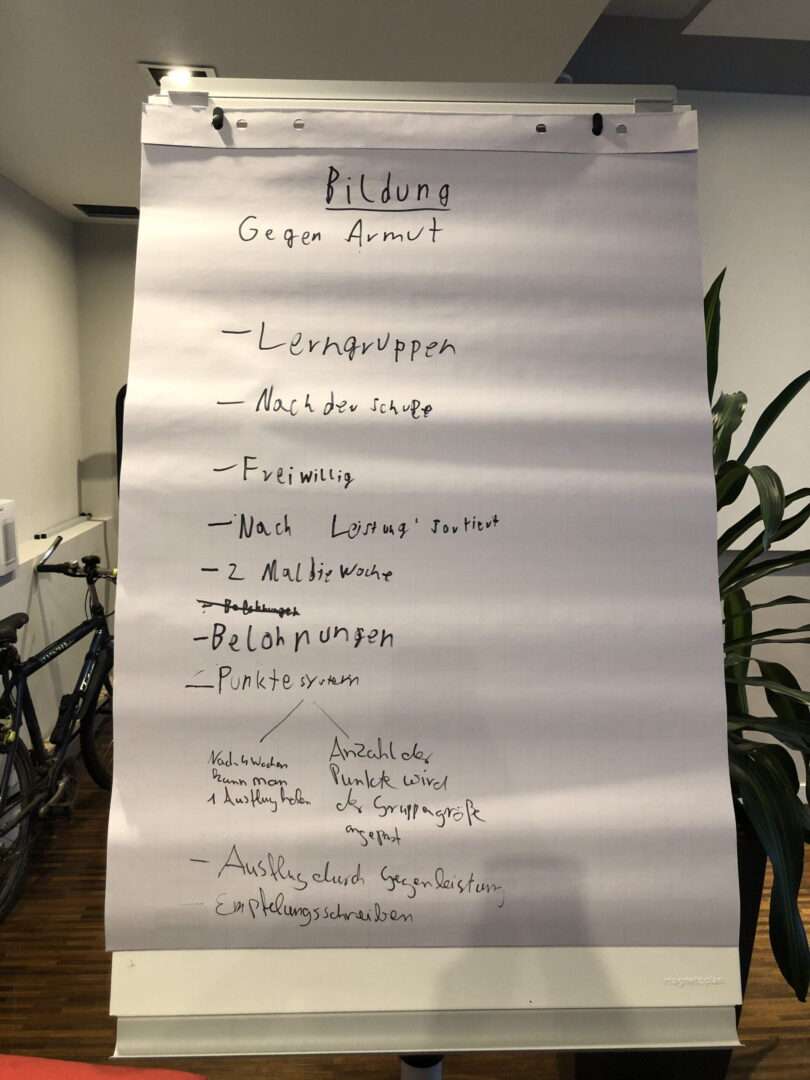 Bildung
Gegen Armut
- Lerngruppen
- Nach der schule
- Freiwillig
- Nach Leistung sortiert
- 2 Mal die Woche
- Belohnungen
- Belohnungen
- Punktesystem
Nach 4 Wochen
kann man
1 Ausflug holen
Anzahl der
Punkte wird
der Gruppengröße
angepasst
- Ausflug durch Gegenleistung
- Empfelungsschreiben
magnetoplan